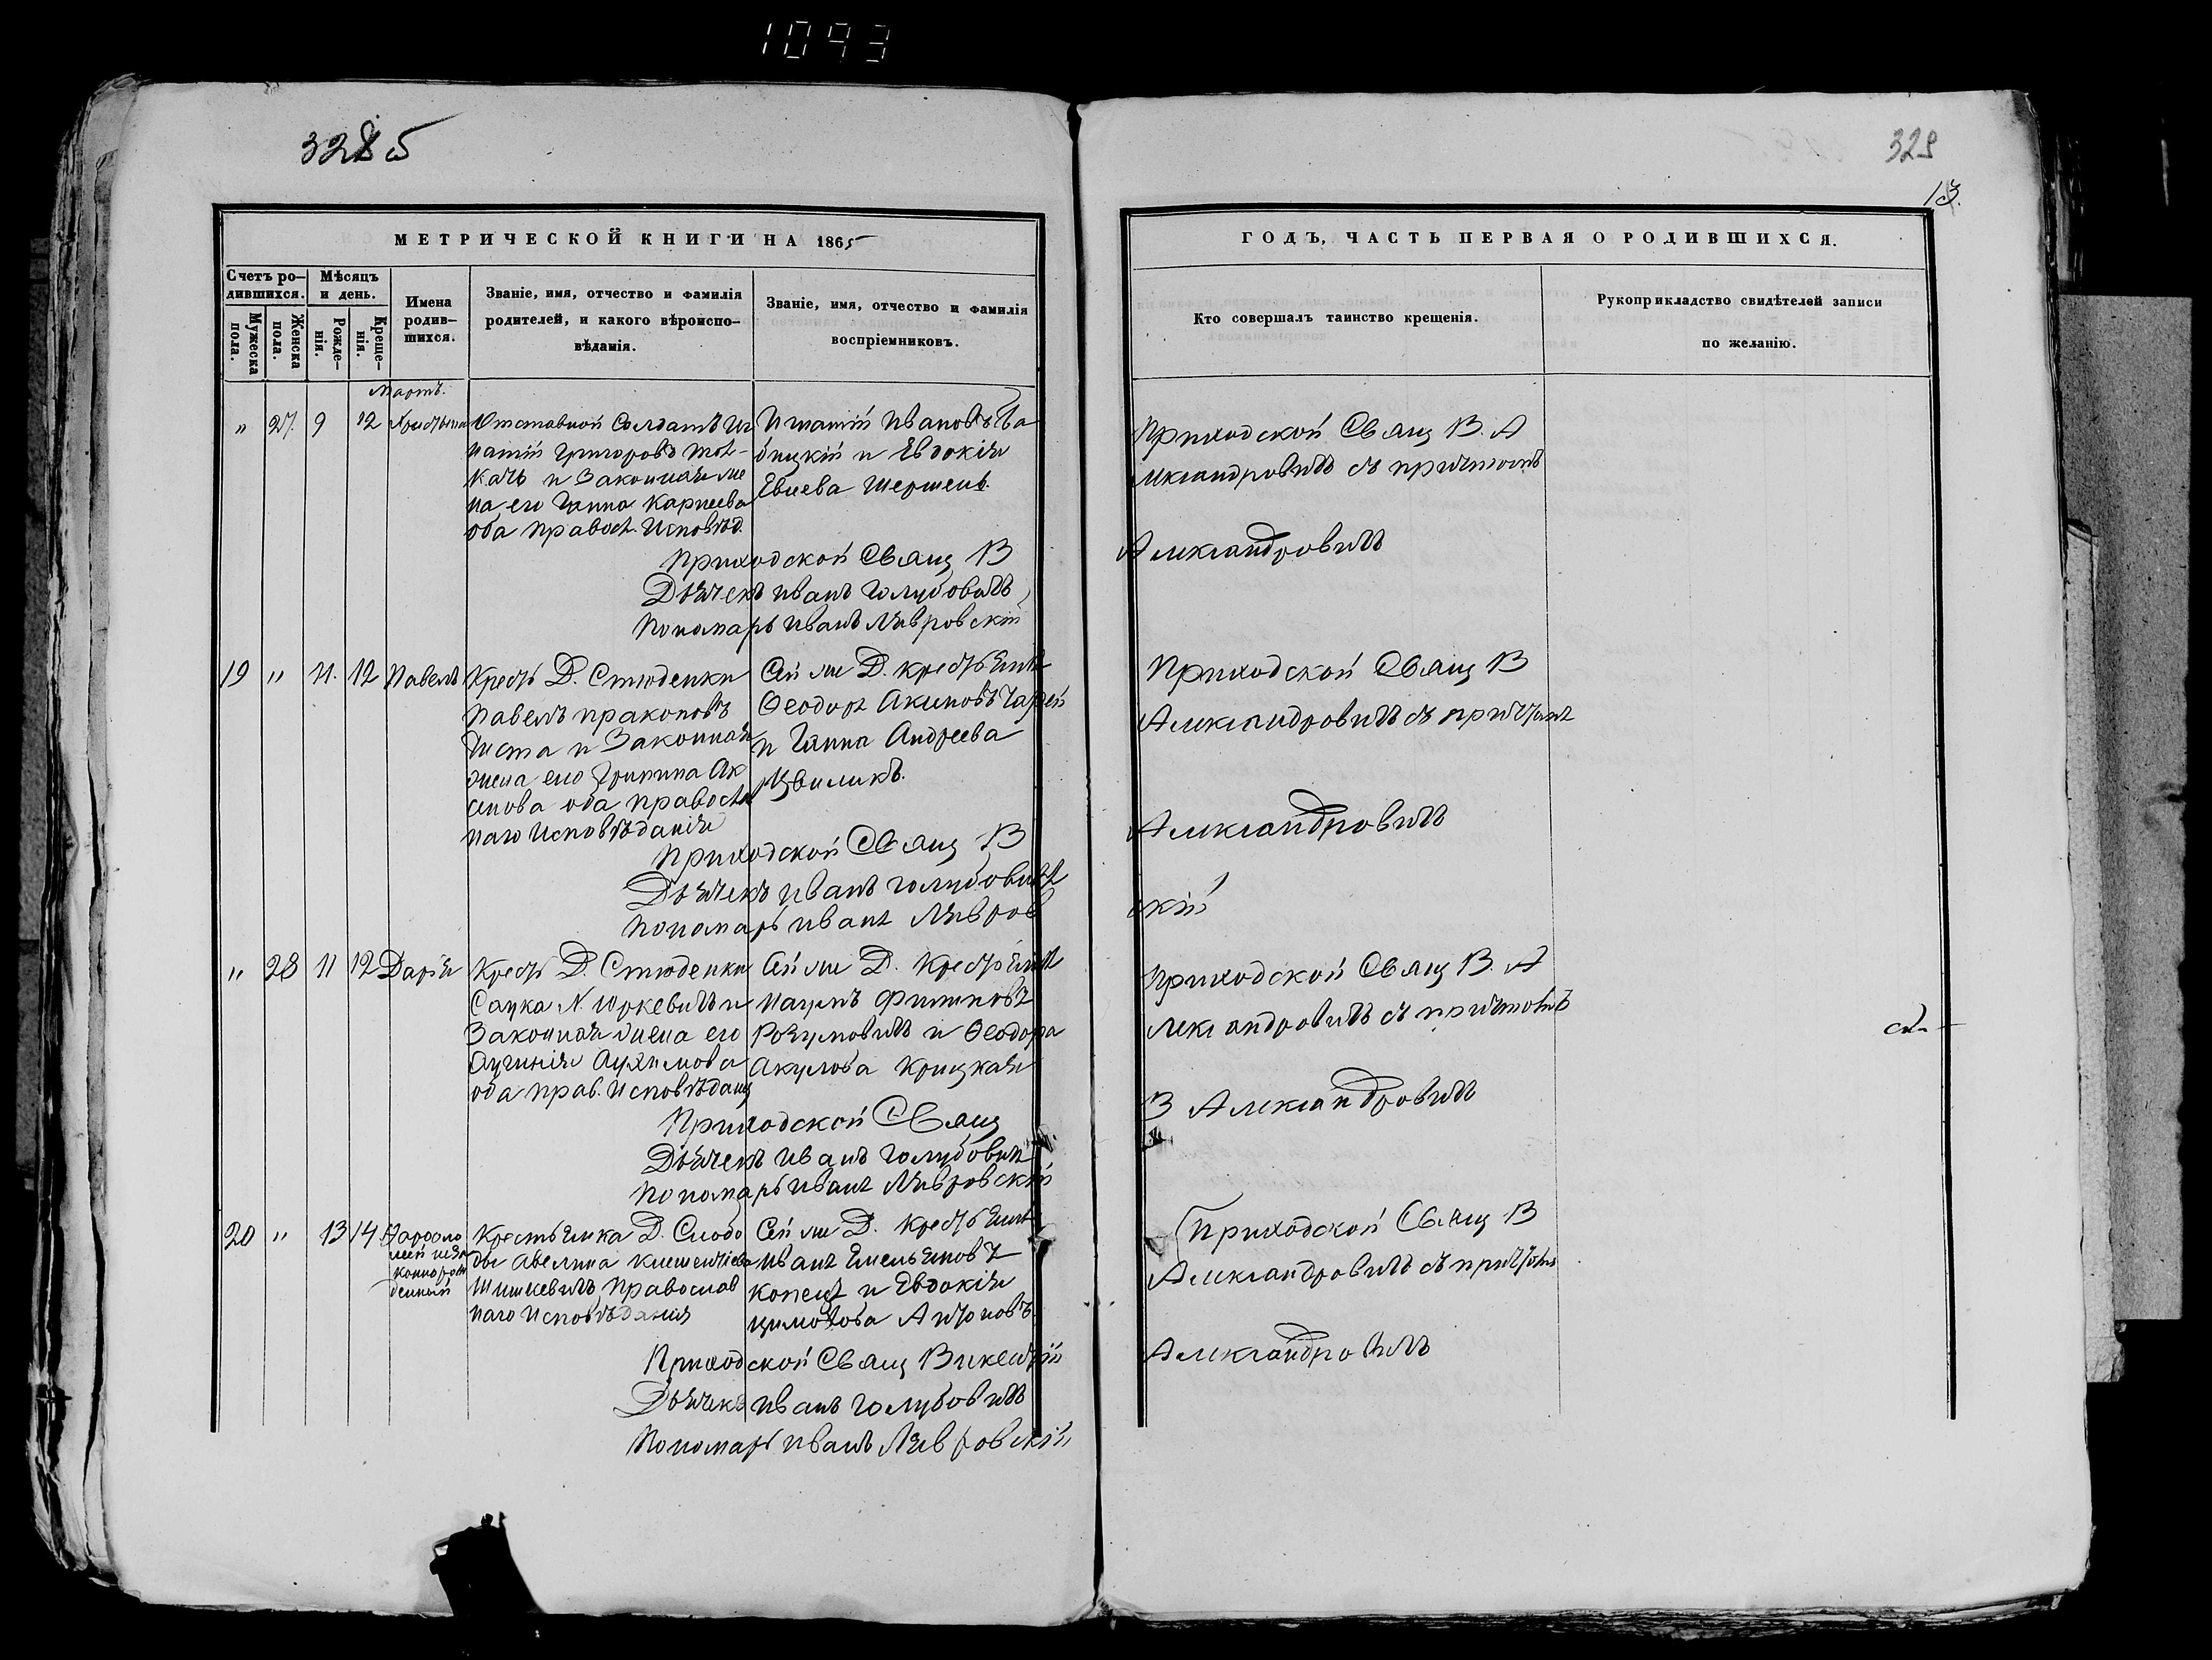 1093
328 об
329
13.
МЕТРИЧЕСКОЙ КНИГИ НА 1865
ГОДЪ, ЧАСТЬ ПЕРВАЯ О РОДИВШИХСЯ.
Счетъ ро-
дившихся.
Мужеска
пола.
Женска
пола.
Мѣсяцъ
и день.
Рожде-
нія.
Креще-
нія.
Имена
родив-
шихся.
Званіе, имя, отчество и фамилія
родителей, и какого вѣроиспо-
вѣданія.
Званіе, имя, отчество и фамилія
воспріемниковъ.
Кто совершалъ таинство крещенія.
Рукоприкладство свидѣтелей записи
по желанію.
Мартъ.
" 27. 9 12
Отставной Солдатъ Иг
натій Григоровъ
и Законная же
на его Ганна Карпеева
оба правосл. Исповѣд.
Игнатій Ивановъ
и Евдокія
Евсева Шершень.
Приходской Свящ В. А
лександровичъ съ причтомъ
Приходской Свящ В
Александровичъ
Дьячекъ Иванъ Голубовичъ
Пономарь Иванъ Лавровскій
19 " 11. 12 Павелъ
Крест Д. Стюденки
Павелъ Пракоповъ
и Законная
жена его Грипина Ак
сенова оба православ
наго Исповѣданія
Сей же Д. крестьянинъ
Ѳеодоръ Акимовъ
и Ганна Андреева
Цвиликъ.
Приходской Свящ В
Александровичъ съ причтомъ
Приходской Свящ В
Александровичъ
Дьячекъ Иванъ Голубовичъ
Пономарь Иванъ Лавров
скій
" 28 11 12 Дарія
Крест Д. Стюденки
Савка Юркевичъ и
Законная жена его
оба прав. Исповѣдан
Сей же Д. Крестьянинъ
Наумъ Филиповъ
Розумовичъ и Ѳеодора
Акулова Крицкая
Приходской Свящ В. А
лександровичъ съ причтомъ
Приходской Свящ
В Александровичъ
Дьячекъ Иванъ Голубовичъ
Пономарь Иванъ Лавровскій
20 " 13 14 Варфоло
мей неза
конорож
денный
Крестьянка Д. Слобо
ды Авелина Клементіева
Шишкевичъ Православ
наго Исповѣданія
Сей же Д. крестьянинъ
Иванъ Емельяновъ
Копецъ и Евдокія
Антоновъ
Приходской Свящ В
Александровичъ съ причтомъ
Приходской Свящ Викентій
Александровичъ
Дьячекъ Иванъ Голубовичъ
Пономарь Иванъ Лавровскій